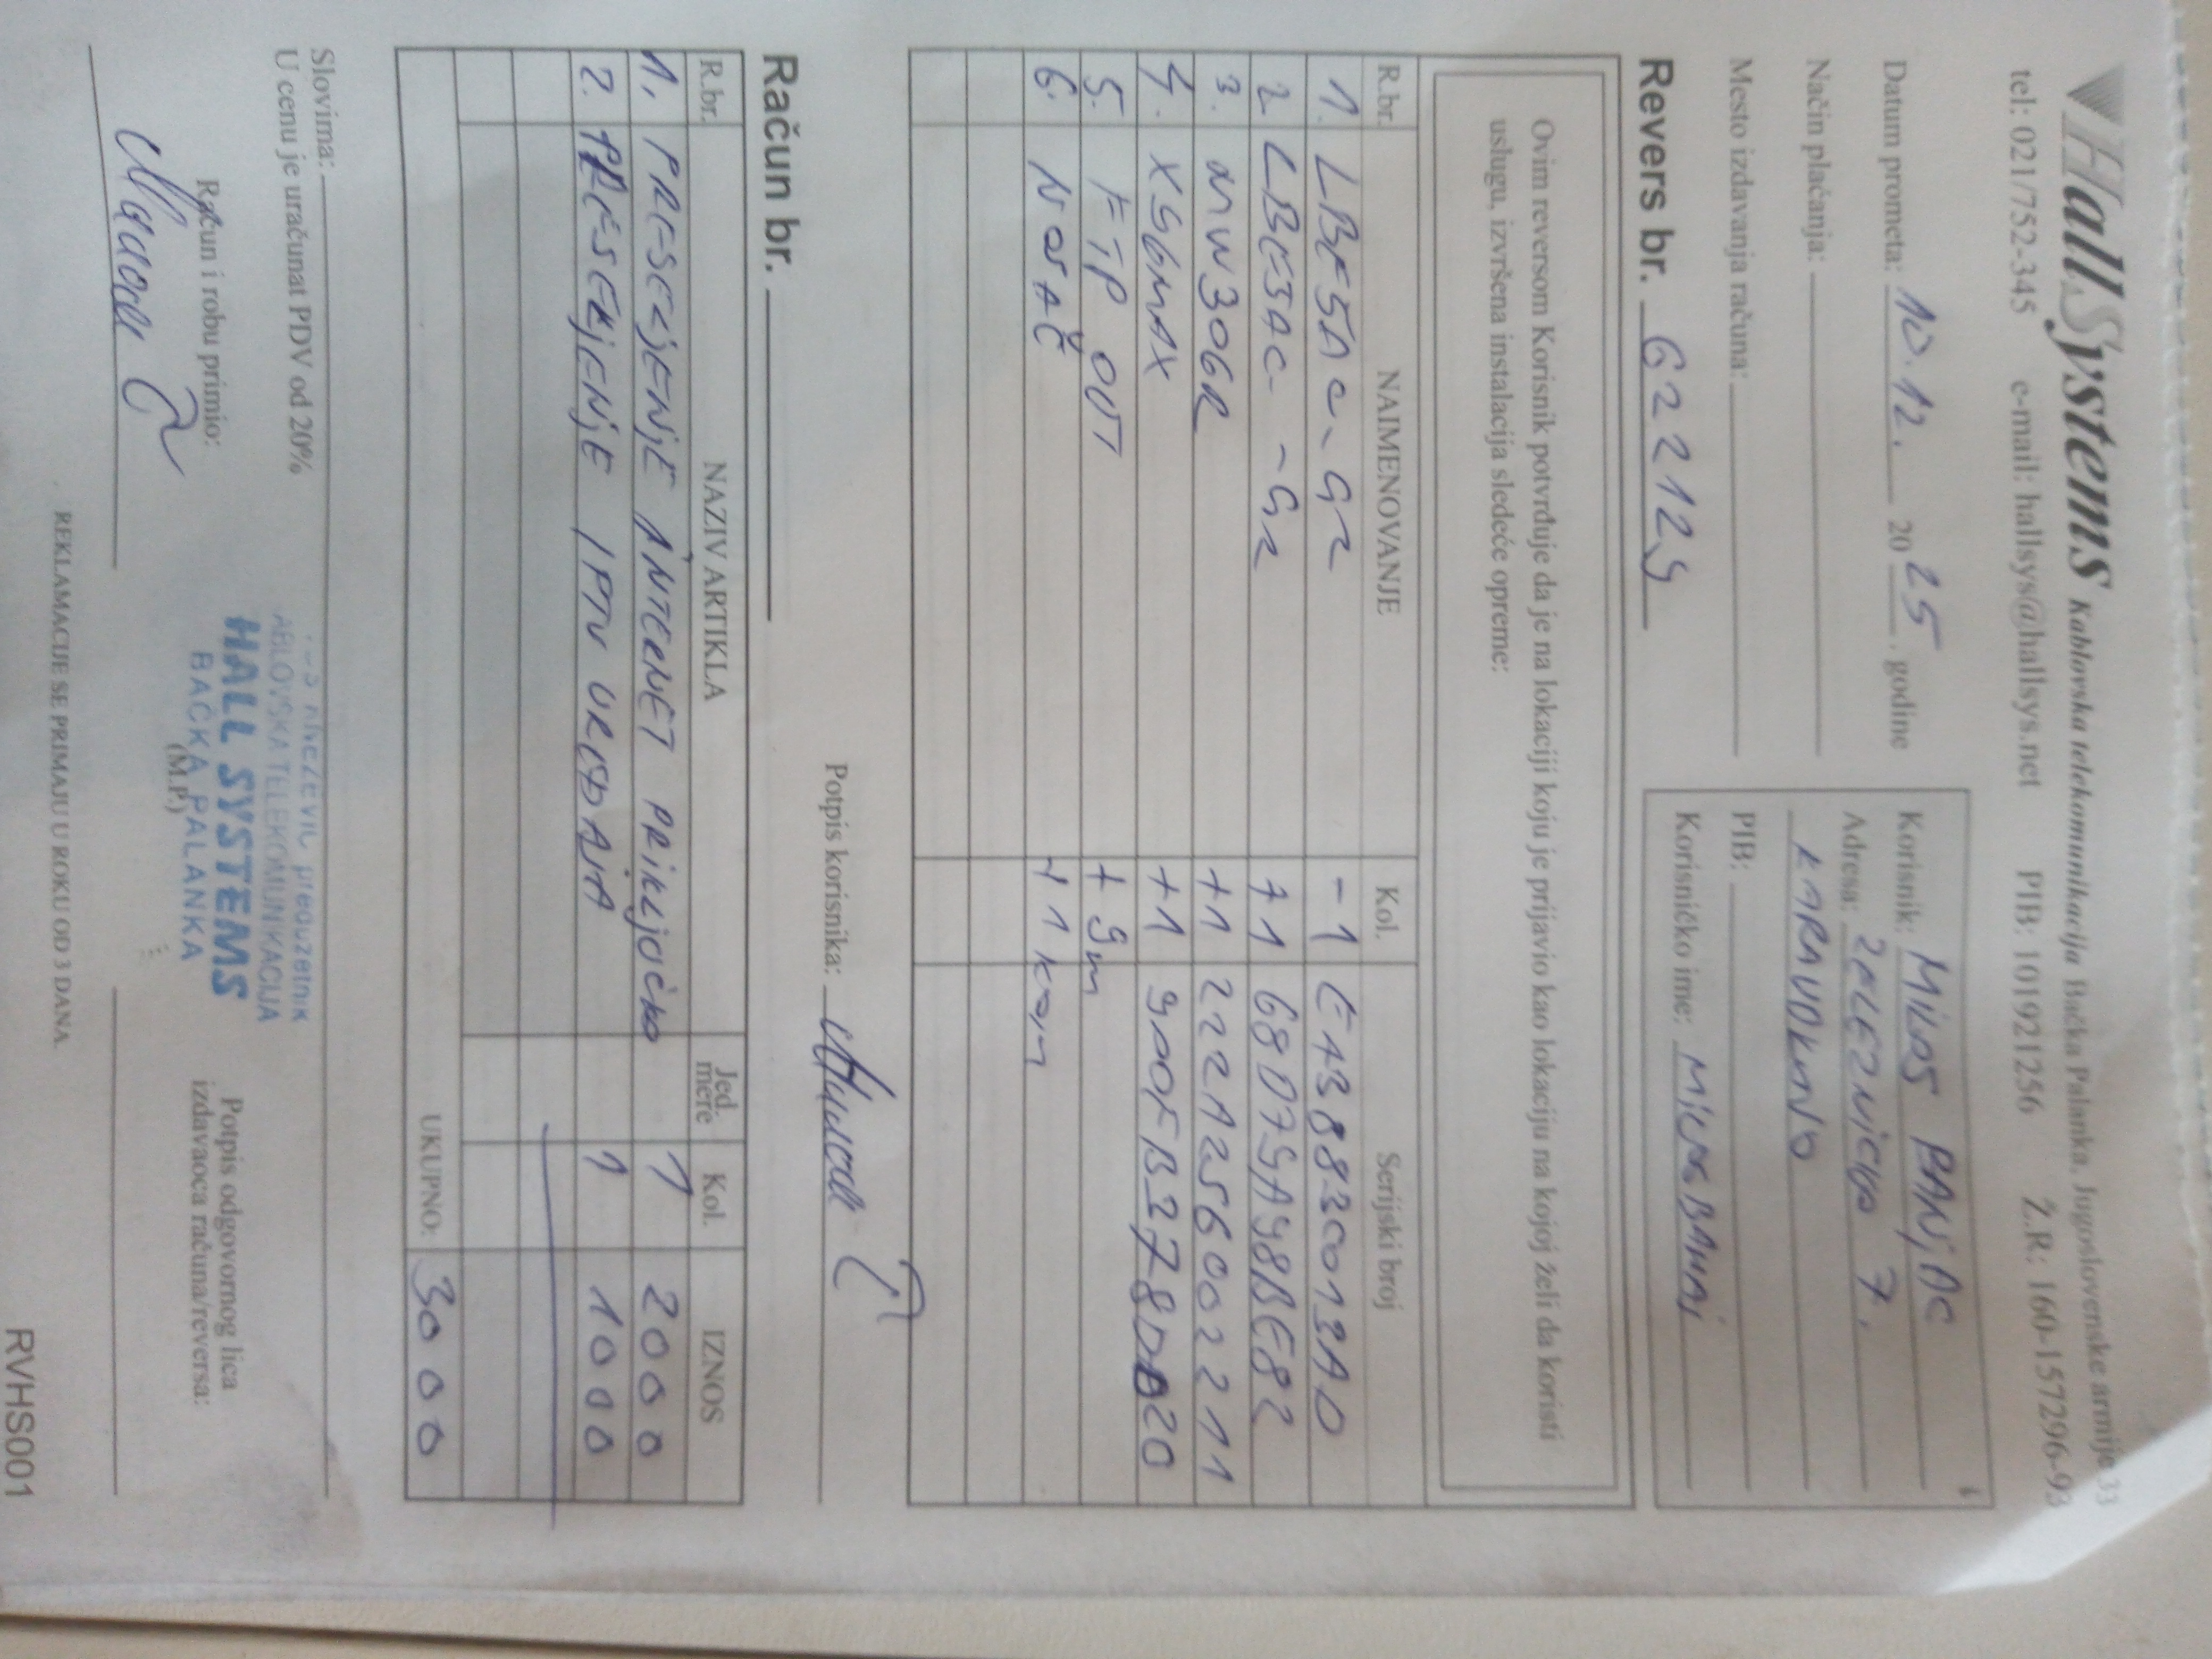 HallSystems Kablovska telekomunikacija Bačka Palanka, Jugoslovenske armije 33
tel: 021/752-345 e-mail: hallsys@hallsys.net PIB: 101921256 Ž.R.: 160-157296-93
Datum prometa: 10.12. 2025. godine
Način plaćanja:
Mesto izdavanja računa:
Revers br. 622129
Korisnik: MILOS BANJAC
Adresa: ŽELEZNIČKA 7.
KARAVUKOVO
PIB:
Korisničko ime: MILOSBANAJ
Ovim reversom Korisnik potvrđuje da je na lokaciji koju je prijavio kao lokaciju na kojoj želi da koristi
uslugu, izvršena instalacija sledeće opreme:
R.br. NAIMENOVANJE Kol. Serijski broj
1. LBE5AC-GR -1 E43883C013AD
2. LBE5AC-GR +1 68D79A98BE82
3. MW306R +1 222A256002211
4. XS6MAX +1 9MOFB3778D020
5. FTP OUT + 9m
6. NOSAČ +1 kom
Potpis korisnika:
Račun br.
R.br. NAZIV ARTIKLA Jed. mere Kol. IZNOS
1. PRESELJENJE INTERNET PRIKLJUČKA 1 2000
2. PRESELJENJE IPTV UREĐAJA 1 1000
UKUPNO: 3000
Slovima:
U cenu je uračunat PDV od 20%
Račun i robu primio:
preduzetnik
ABLOVSKA TELEKOMUNIKACIJA
HALL SYSTEMS
BAČKA PALANKA
(M.P.)
Potpis odgovornog lica
izdavaoca računa/reversa:
REKLAMACIJE SE PRIMAJU U ROKU OD 3 DANA
RVHS001